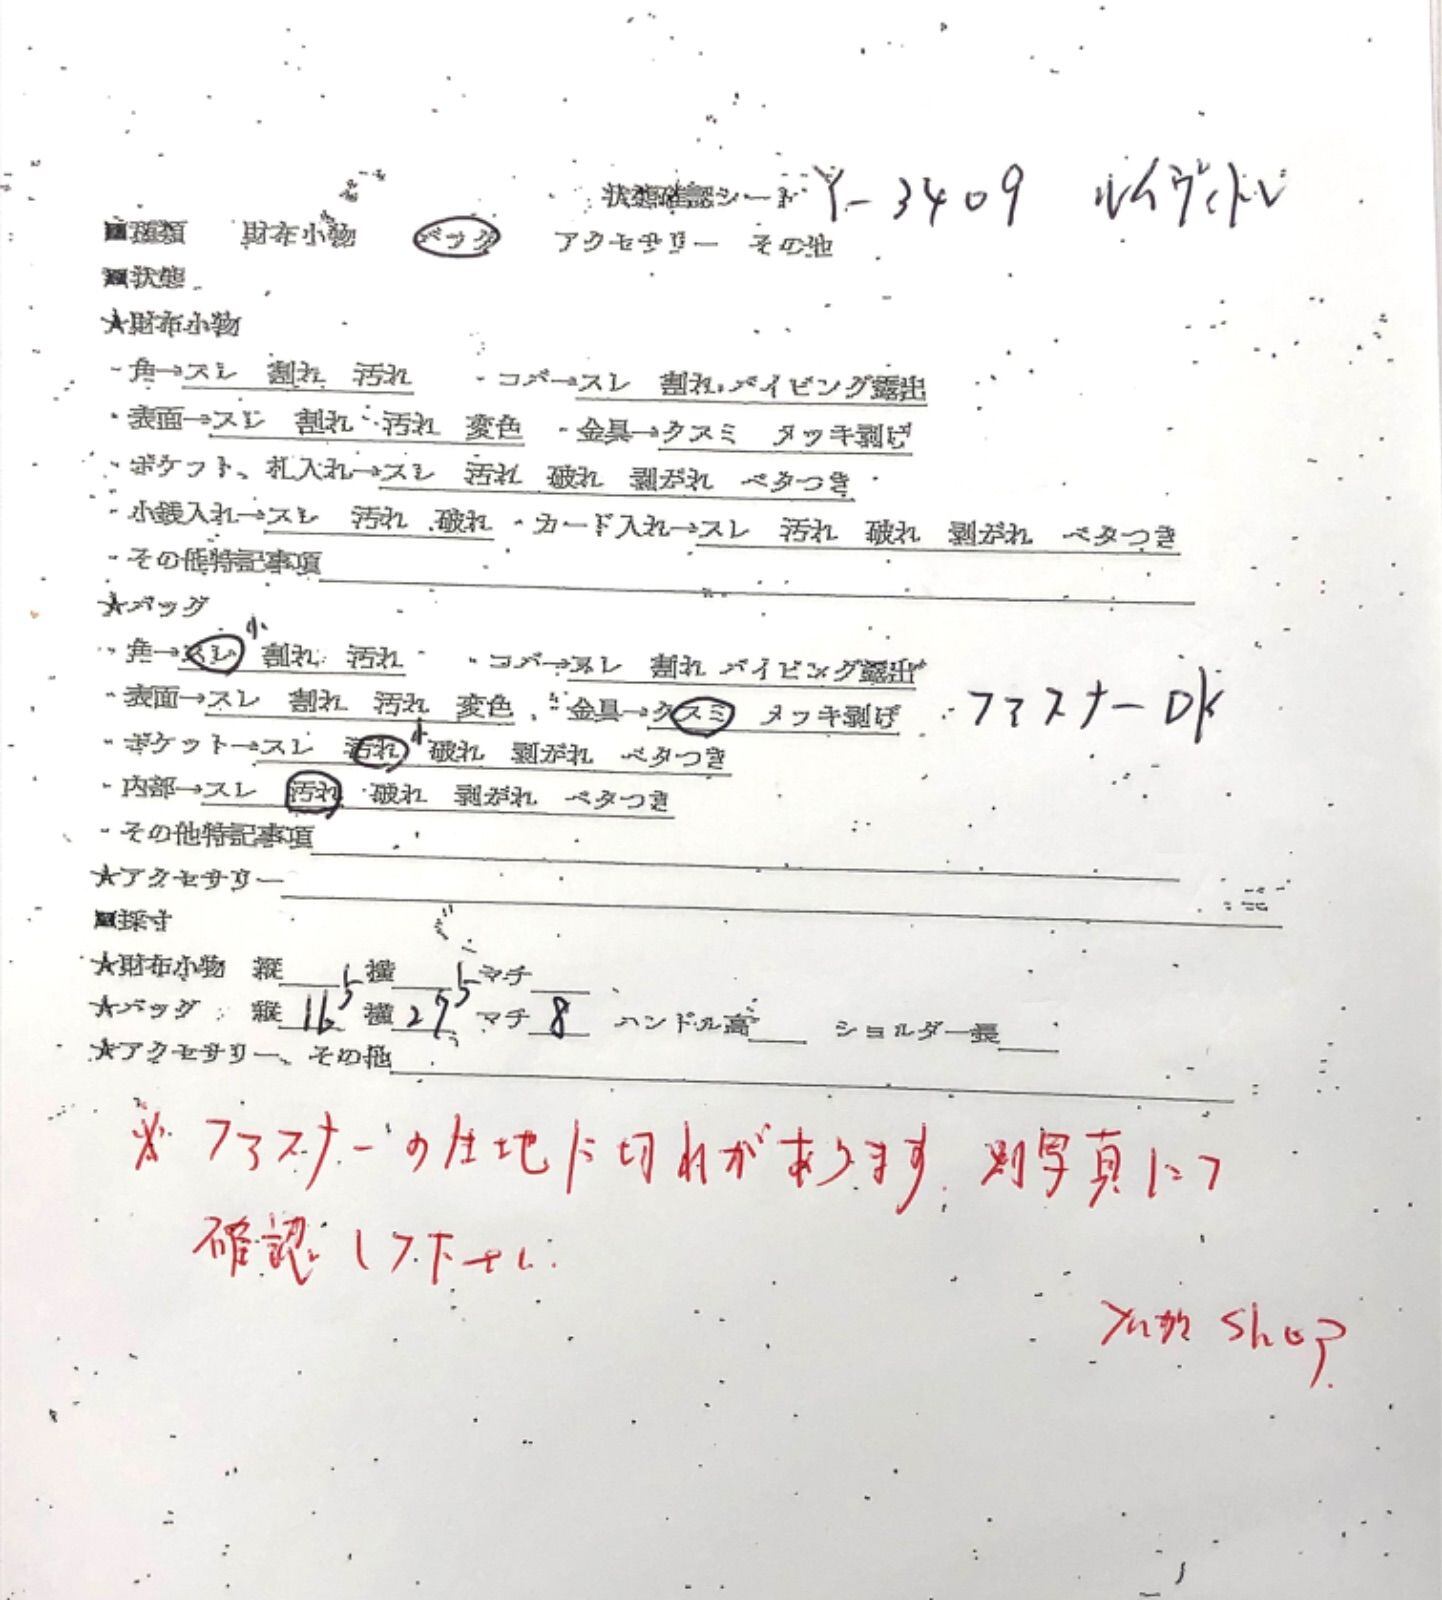 状態確認シート Y-3409 ルイヴィトン
■種類 財布小物 バッグ アクセサリー その他
■状態
★財布小物
・角→スレ 割れ 汚れ ・コバ→スレ 割れ パイピング露出
・表面→スレ 割れ 汚れ 変色 ・金具→クスミ メッキ剥げ
・ポケット、札入れ→スレ 汚れ 破れ 剥がれ ベタつき
・小銭入れ→スレ 汚れ 破れ ・カード入れ→スレ 汚れ 破れ 剥がれ ベタつき
・その他特記事項
★バッグ
・角→スレ 小 割れ 汚れ ・コバ→スレ 割れ パイピング露出
・表面→スレ 割れ 汚れ 変色 ・金具→クスミ メッキ剥げ ファスナーOK
・ポケット→スレ 汚れ 小 破れ 剥がれ ベタつき
・内部→スレ 汚れ 破れ 剥がれ ベタつき
・その他特記事項
★アクセサリー
■採寸
★財布小物 縦 横 マチ
★バッグ 縦 16.5 横 27.5 マチ 8 ハンドル高 ショルダー長
★アクセサリー、その他
※ ファスナーの生地に切れがあります。別写真にて
確認して下さい。
shop